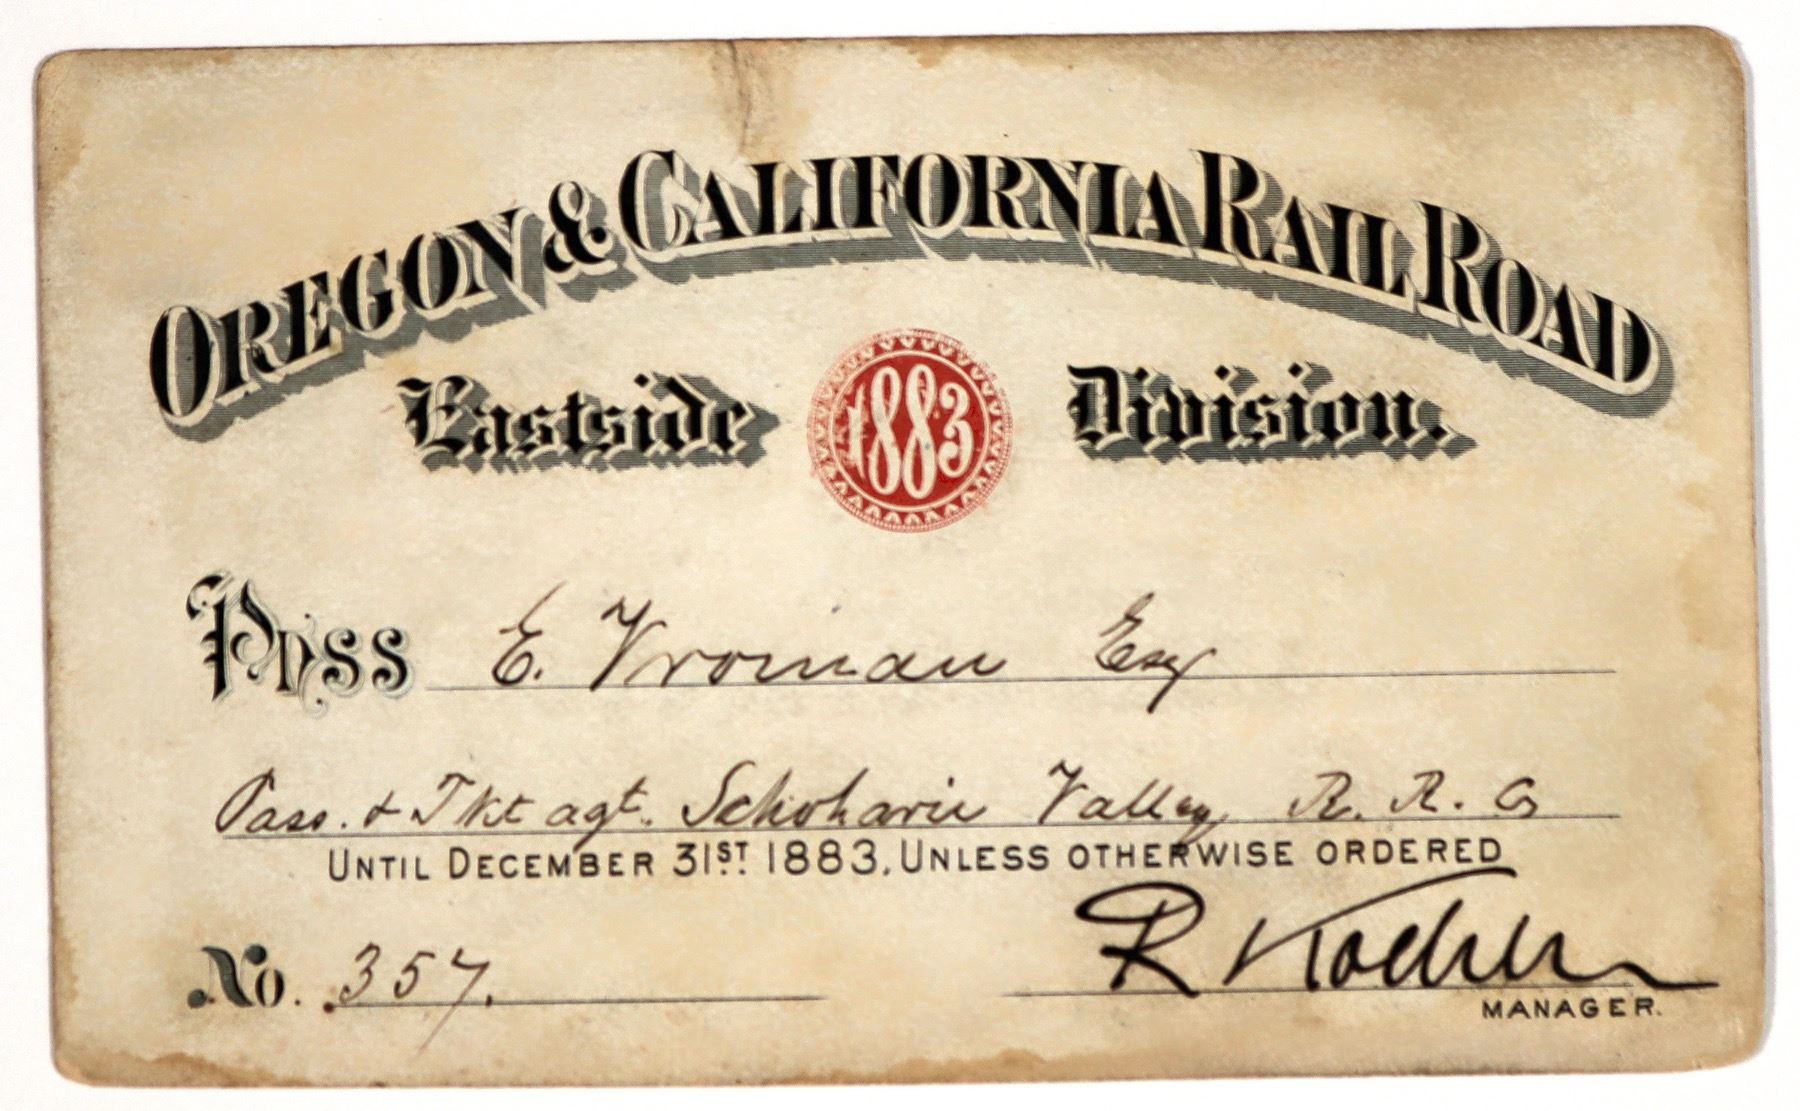 OREGON & CALIFORNIA RAIL ROAD
Eastside 1883 Division.
Pass E. Vroman Esq
Pass. & Tkt agt. Schoharie Valley R. R. Co
UNTIL DECEMBER 31ST. 1883, UNLESS OTHERWISE ORDERED
No. 357. R Koehler
MANAGER.